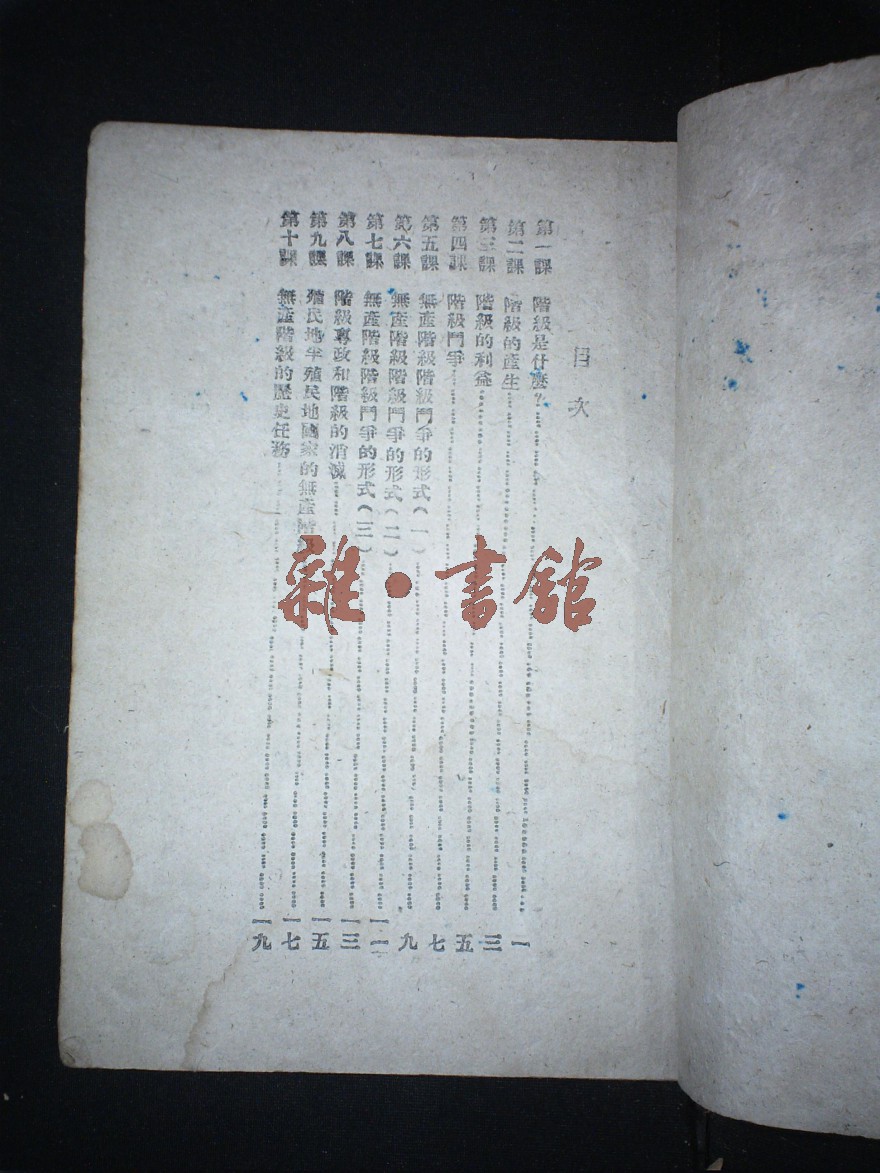 目次
第一課 階級是什麼?……一
第二課 階級的產生……三
第三課 階級的利益……五
第四課 階級鬥爭……七
第五課 無產階級階級鬥爭的形式(一)……九
第六課 無產階級階級鬥爭的形式(二)……一一
第七課 無產階級階級鬥爭的形式(三)……一三
第八課 階級專政和階級的消滅……一五
第九課 殖民地半殖民地國家的無產階級……一七
第十課 無產階級的歷史任務……一九
雜·書館